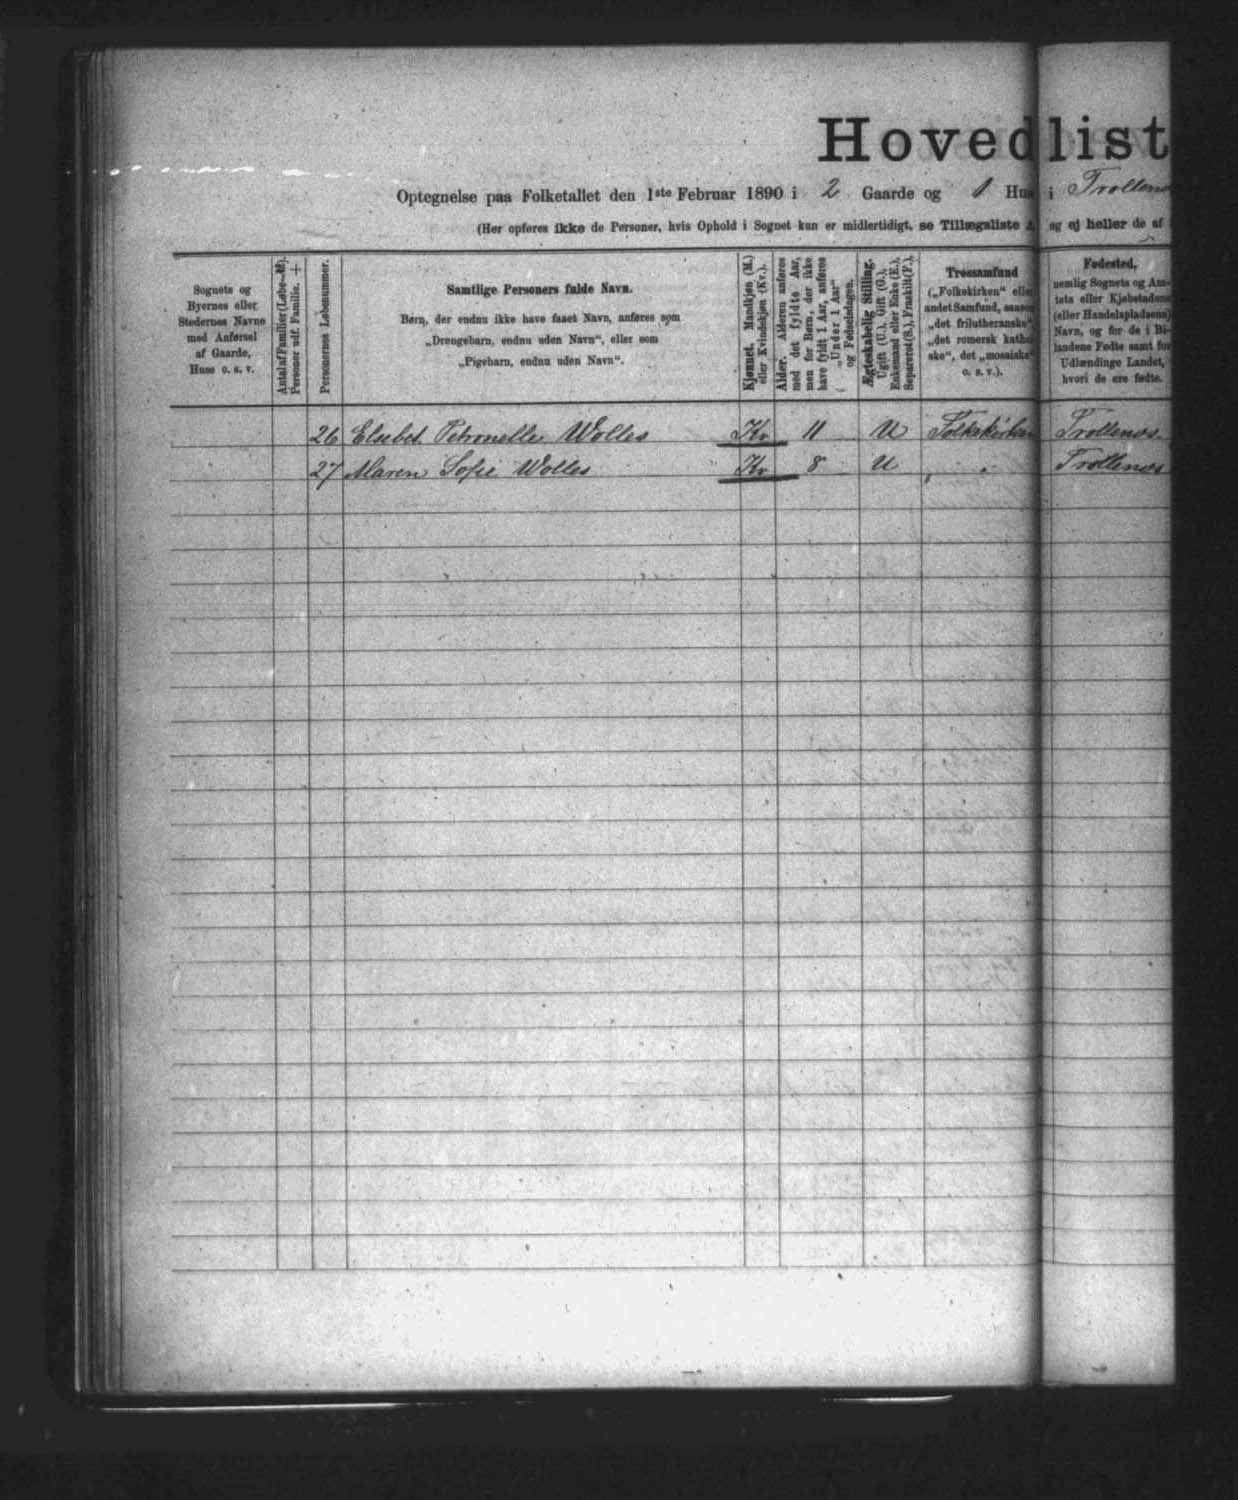 Hovedlist
Optegnelse paa Folketallet den 1ste Februar 1890 i 2 Gaarde og 1 Hus i Trollenæs
(Her opføres ikke de Personer, hvis Ophold i Sognet kun er midlertidigt, se Tillægsliste A, og ej heller de af
Sognets og
Byernes eller
Stedernes Navne
med Anførsel
af Gaarde,
Huse o. s. v.
Antal af Familier (Løbe-№).
Personer udf. Familie. +
Personernes Løbenummer.
Samtlige Personers fulde Navn.
Børn, der endnu ikke have faaet Navn, anføres som
„Drengebarn, endnu uden Navn“, eller som
„Pigebarn, endnu uden Navn“.
Kjønnet. Mandkjøn (M.)
eller Kvindekjøn (Kv.).
Alder. Alderen anføres
med det fyldte Aar,
men for Børn, der ikke
have fyldt 1 Aar, anføres
„Under 1 Aar“
og Fødselsdagen.
Ægteskabelig Stilling.
Ugift (U.), Gift (G.),
Enkemand eller Enke (E.),
Separeret (S.), Fraskilt (F.).
Trossamfund
(„Folkekirken“ eller
andet Samfund, saasom
„det frilutheranske“,
„det romersk katholske“, det „mosaiske“
o. s. v.).
Fødested,
nemlig Sognets og Amtets eller Kjøbstadens
(eller Handelspladsens)
Navn, og for de i Bilandene Fødte samt for
Udlændinge Landet,
hvori de ere fødte.
26 Elsebet Petronelle Wolles Kv 11 U Folkekirken Trollenæs
27 Maren Sofie Wolles Kv 8 U „ „ Trollenæs